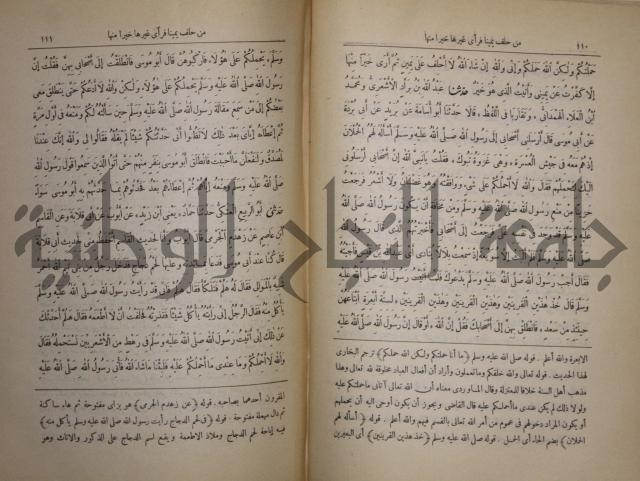 ١١٠
من حلف يمينا فرأى غيرها خيرا منها
حَمَلْتُكُمْ وَلٰكِنَّ اللهَ حَمَلَكُمْ وَإِنِّى وَاللهِ إِنْ شَاءَ اللهُ لَا أَحْلِفُ عَلَى يَمِينٍ ثُمَّ أَرَى خَيْرًا مِنْهَا
إِلَّا كَفَّرْتُ عَنْ يَمِينِى وَأَتَيْتُ الَّذِى هُوَ خَيْرٌ حَدَّثَنَا عَبْدُ اللهِ بْنُ بَرَّادٍ الْأَشْعَرِىُّ وَمُحَمَّدُ
ابْنُ الْعَلَاءِ الْهَمْدَانِىُّ وَتَقَارَبَا فِى اللَّفْظِ، قَالَا حَدَّثَنَا أَبُو أُسَامَةَ عَنْ بُرَيْدٍ عَنْ أَبِى بُرْدَةَ
عَنْ أَبِى مُوسَى قَالَ أَرْسَلَنِى أَصْحَابِى إِلَى رَسُولِ اللهِ صَلَّى اللهُ عَلَيْهِ وَسَلَّمَ أَسْأَلُهُ لَهُمُ الْحُمْلَانَ
إِذْ هُمْ مَعَهُ فِى جَيْشِ الْعُسْرَةِ، وَهِىَ غَزْوَةُ تَبُوكَ، فَقُلْتُ يَا نَبِىَّ اللهِ إِنَّ أَصْحَابِى أَرْسَلُونِى
إِلَيْكَ لِتَحْمِلَهُمْ فَقَالَ وَاللهِ لَا أَحْمِلُكُمْ عَلَى شَىْءٍ، وَوَافَقْتُهُ وَهُوَ غَضْبَانُ وَلَا أَشْعُرُ فَرَجَعْتُ
حَزِينًا مِنْ مَنْعِ رَسُولِ اللهِ صَلَّى اللهُ عَلَيْهِ وَسَلَّمَ وَمِنْ مَخَافَةِ أَنْ يَكُونَ رَسُولُ اللهِ صَلَّى اللهُ
فَقَالَ أَجِبْ رَسُولَ اللهِ صَلَّى اللهُ عَلَيْهِ وَسَلَّمَ يَدْعُوكَ فَلَمَّا أَتَيْتُ رَسُولَ اللهِ صَلَّى اللهُ عَلَيْهِ
وَسَلَّمَ قَالَ خُذْ هٰذَيْنِ الْقَرِينَيْنِ وَهٰذَيْنِ الْقَرِينَيْنِ وَهٰذَيْنِ الْقَرِينَيْنِ، لِسِتَّةِ أَبْعِرَةٍ ابْتَاعَهُنَّ
حِينَئِذٍ مِنْ سَعْدٍ، فَانْطَلِقْ بِهِنَّ إِلَى أَصْحَابِكَ فَقُلْ إِنَّ اللهَ، أَوْ قَالَ إِنَّ رَسُولَ اللهِ صَلَّى اللهُ عَلَيْهِ
الابعرة والله أعلم. قوله صلى الله عليه وسلم ﴿ما أنا حملتكم ولكن الله حملكم﴾ ترجم البخارى
لهذا الحديث قوله تعالى والله خلقكم وما تعملون وأراد أن أفعال العباد مخلوقة لله تعالى وهذا
مذهب أهل السنة خلافا للمعتزلة وقال الماوردى معناه أن الله تعالى آتانى ما حملتكم عليه
ولولا ذلك لم يكن عندى ما أحملكم عليه قال القاضى ويجوز أن يكون أوحى اليه أن يحملهم
أو يكون المراد دخولهم فى عموم من أمر الله تعالى بالقسم فيهم والله أعلم. قوله ﴿أسأله لهم
الحملان﴾ بضم الحاء أى الحمل. قوله صلى الله عليه وسلم ﴿خذ هذين القرينين﴾ أى البعيرين
من حلف يمينا فرأى غيرها خيرا منها
١١١
وَسَلَّمَ، يَحْمِلُكُمْ عَلَى هٰؤُلَاءِ، فَارْكَبُوهُنَّ قَالَ أَبُو مُوسَى فَانْطَلَقْتُ إِلَى أَصْحَابِى بِهِنَّ فَقُلْتُ إِنَّ
رَسُولَ اللهِ صَلَّى اللهُ عَلَيْهِ وَسَلَّمَ يَحْمِلُكُمْ عَلَى هٰؤُلَاءِ وَلٰكِنْ وَاللهِ لَا أَدَعُكُمْ حَتَّى يَنْطَلِقَ مَعِى
بَعْضُكُمْ إِلَى مَنْ سَمِعَ مَقَالَةَ رَسُولِ اللهِ صَلَّى اللهُ عَلَيْهِ وَسَلَّمَ حِينَ سَأَلْتُهُ لَكُمْ وَمَنْعَهُ فِى أَوَّلِ مَرَّةٍ
ثُمَّ إِعْطَاءَهُ إِيَّاىَ بَعْدَ ذٰلِكَ لَا تَظُنُّوا أَنِّى حَدَّثْتُكُمْ شَيْئًا لَمْ يَقُلْهُ فَقَالُوا لِى وَاللهِ إِنَّكَ عِنْدَنَا
لَمُصَدَّقٌ وَلَنَفْعَلَنَّ مَا أَحْبَبْتَ فَانْطَلَقَ أَبُو مُوسَى بِنَفَرٍ مِنْهُمْ حَتَّى أَتَوُا الَّذِينَ سَمِعُوا قَوْلَ رَسُولِ اللهِ
صَلَّى اللهُ عَلَيْهِ وَسَلَّمَ وَمَنْعَهُ إِيَّاهُمْ ثُمَّ إِعْطَاءَهُمْ بَعْدُ فَحَدَّثُوهُمْ بِمَا حَدَّثَهُمْ بِهِ أَبُو مُوسَى سَوَاءً
حَدَّثَنِى أَبُو الرَّبِيعِ الْعَتَكِىُّ حَدَّثَنَا حَمَّادٌ، يَعْنِى ابْنَ زَيْدٍ، عَنْ أَيُّوبَ عَنْ أَبِى قِلَابَةَ وَعَنِ الْقَاسِمِ
ابْنِ عَاصِمٍ عَنْ زَهْدَمٍ الْجَرْمِىِّ قَالَ أَيُّوبُ وَأَنَا لِحَدِيثِ الْقَاسِمِ أَحْفَظُ مِنِّى لِحَدِيثِ أَبِى قِلَابَةَ
جامعة النجاح الوطنية
يَأْكُلُ مِنْهُ فَقَالَ الرَّجُلُ إِنِّى رَأَيْتُهُ يَأْكُلُ شَيْئًا فَقَذِرْتُهُ فَحَلَفْتُ أَنْ لَا أَطْعَمَهُ فَقَالَ هَلُمَّ أُحَدِّثْكَ
عَنْ ذٰلِكَ إِنِّى أَتَيْتُ رَسُولَ اللهِ صَلَّى اللهُ عَلَيْهِ وَسَلَّمَ فِى رَهْطٍ مِنَ الْأَشْعَرِيِّينَ نَسْتَحْمِلُهُ فَقَالَ
وَاللهِ لَا أَحْمِلُكُمْ وَمَا عِنْدِى مَا أَحْمِلُكُمْ عَلَيْهِ فَلَبِثْنَا مَا شَاءَ اللهُ فَأُتِىَ رَسُولُ اللهِ صَلَّى اللهُ عَلَيْهِ
المقرون أحدهما بصاحبه. قوله ﴿عن زهدم الجرمى﴾ هو بزاى مفتوحة ثم هاء ساكنة
ثم دال مهملة مفتوحة. قوله ﴿فى لحم الدجاج رأيت رسول الله صلى الله عليه وسلم يأكل منه﴾
فيه إباحة لحم الدجاج وملاذ الاطعمة ويقع اسم الدجاج على الذكور والاناث وهو